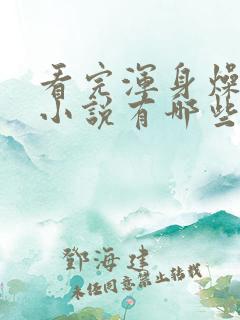 看完浑身燥
小说有哪些
邓海建
未经同意禁止转载